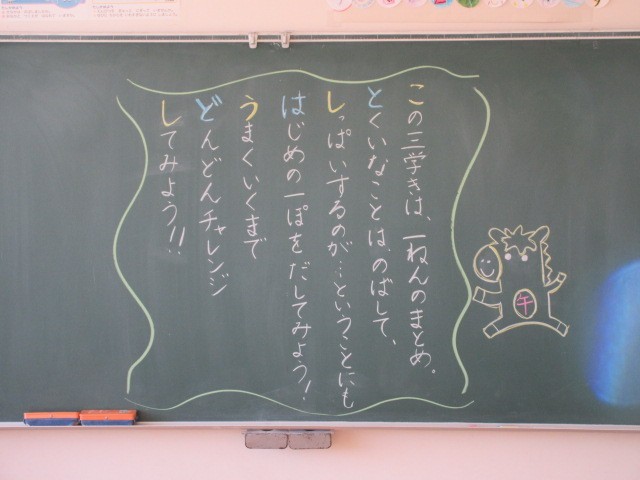 この三学きは、一ねんのまとめ。
とくいなことは、のばして、
しっぱいするのが…ということにも
はじめの一ぽをだしてみよう!
うまくいくまで
どんどんチャレンジ
してみよう!!
午